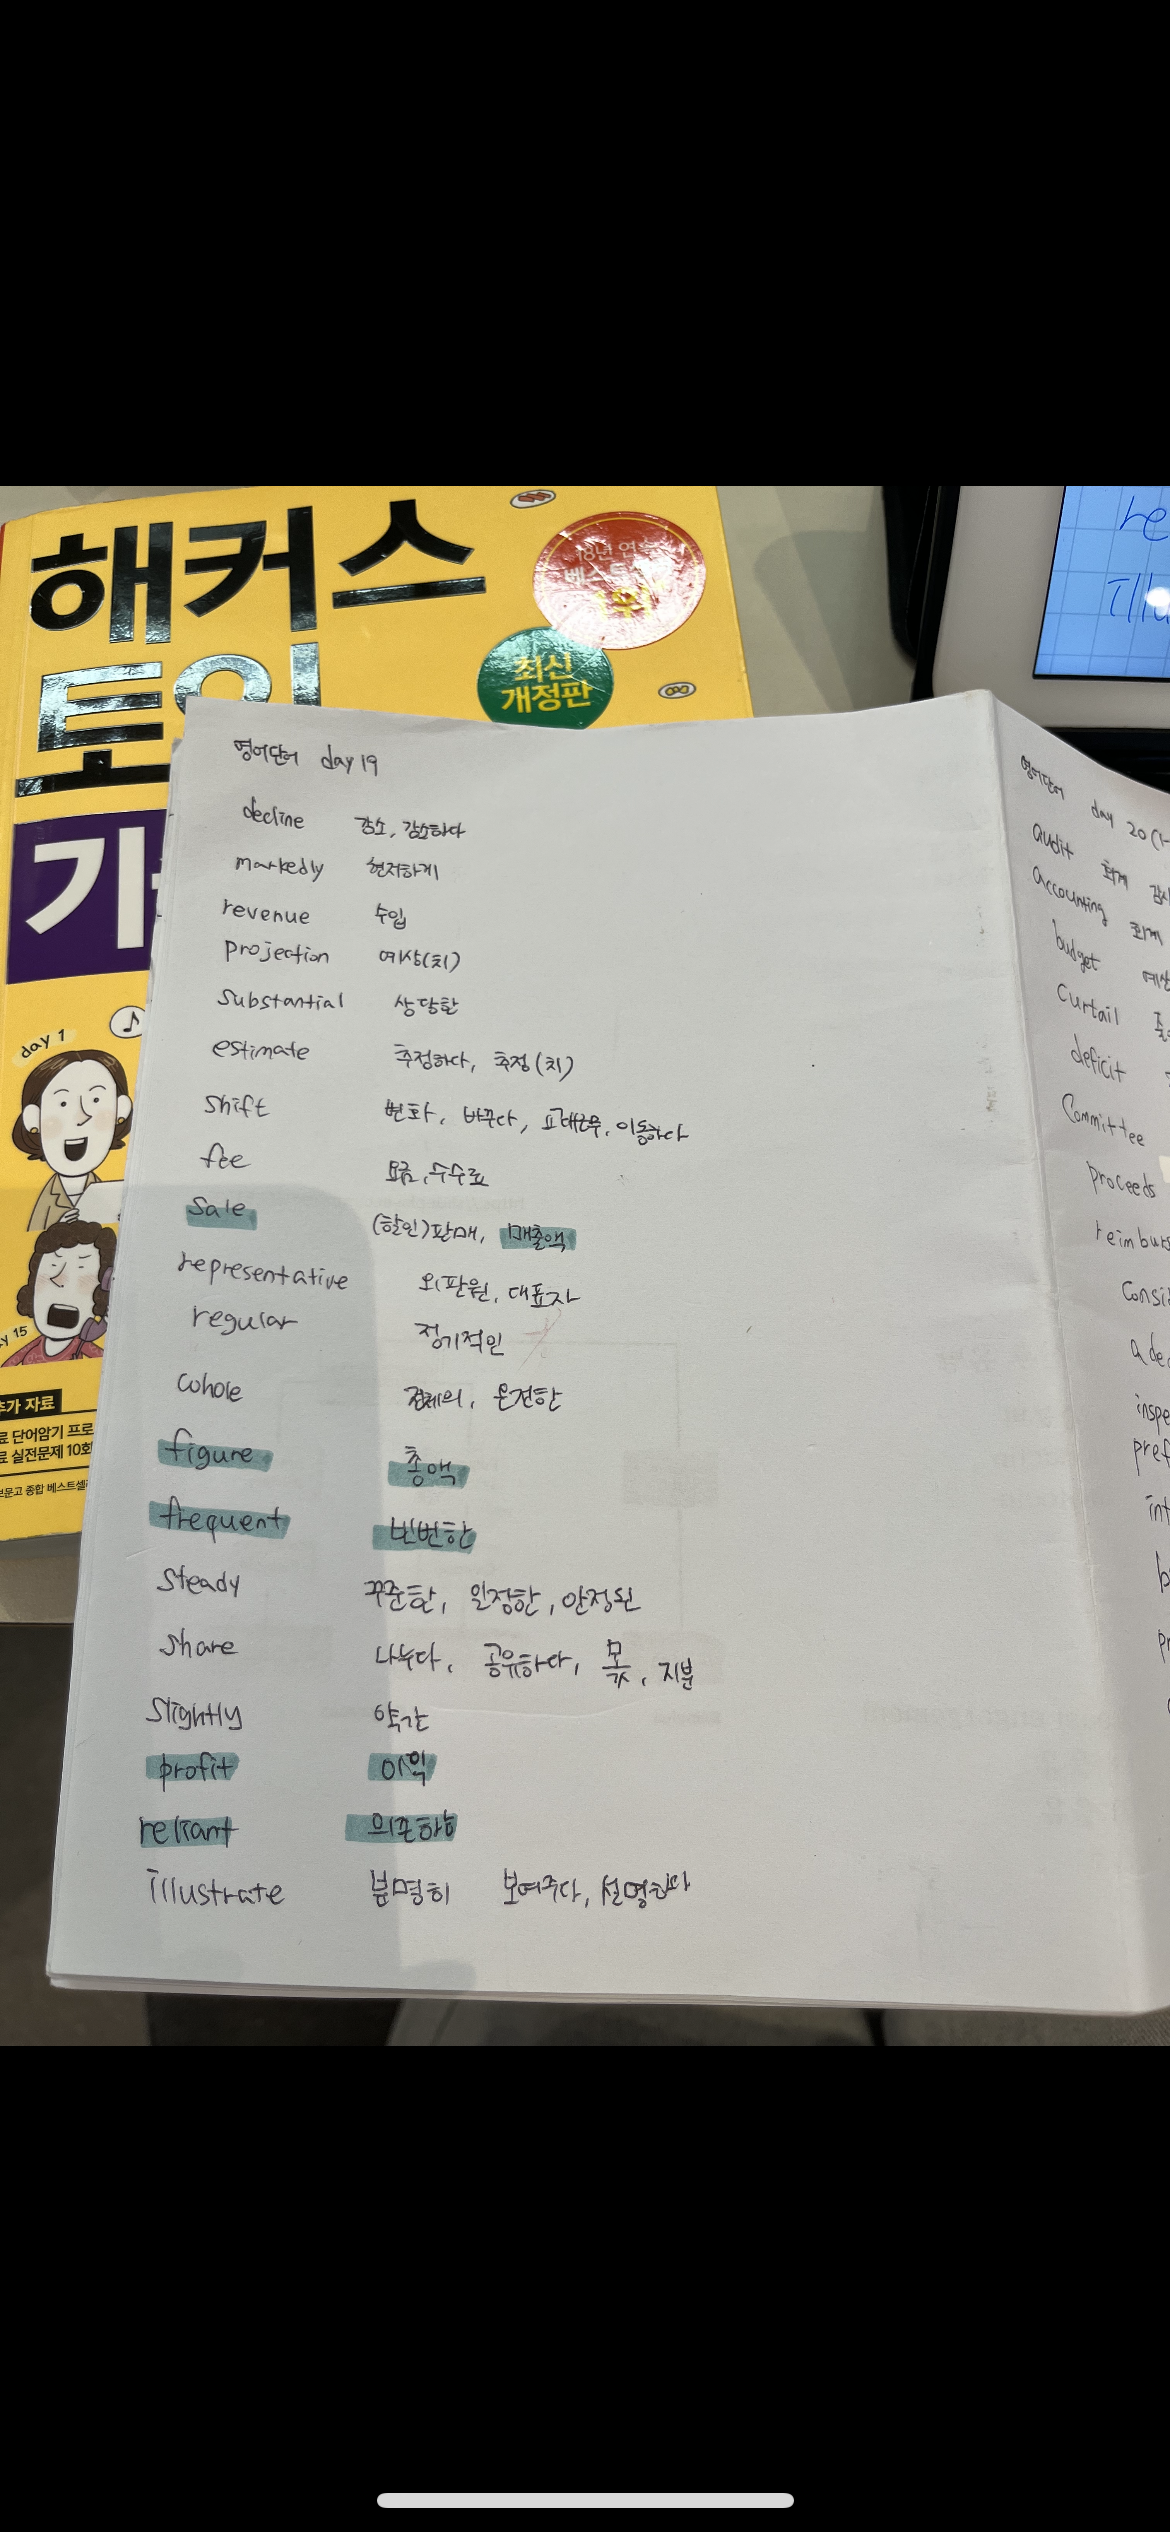 해커스
18년 연속
베스트셀러
1위
최신
개정판
토익
기
day 1
추가 자료
실전문제 10회
re
illu
영어단어 day 19
decline 감소, 감소하다
markedly 현저하게
revenue 수입
projection 예상(치)
substantial 상당한
estimate 추정하다, 추정(치)
shift 변화, 바꾸다, 교대근무, 이동하다
fee 요금, 수수료
sale (할인)판매, 매출액
representative 외판원, 대표자
regular 정기적인
whole 전체의, 온전한
figure 총액
frequent 빈번한
steady 꾸준한, 일정한, 안정된
share 나누다, 공유하다, 몫, 지분
slightly 약간
profit 이익
reliant 의존하는
illustrate 분명히 보여주다, 설명하다
영어단어 day 20 (1-
audit 회계 감사
accounting 회계
budget 예상
curtail
deficit
committee
proceeds
reimburs
consi
a dec
inspe
pref
int